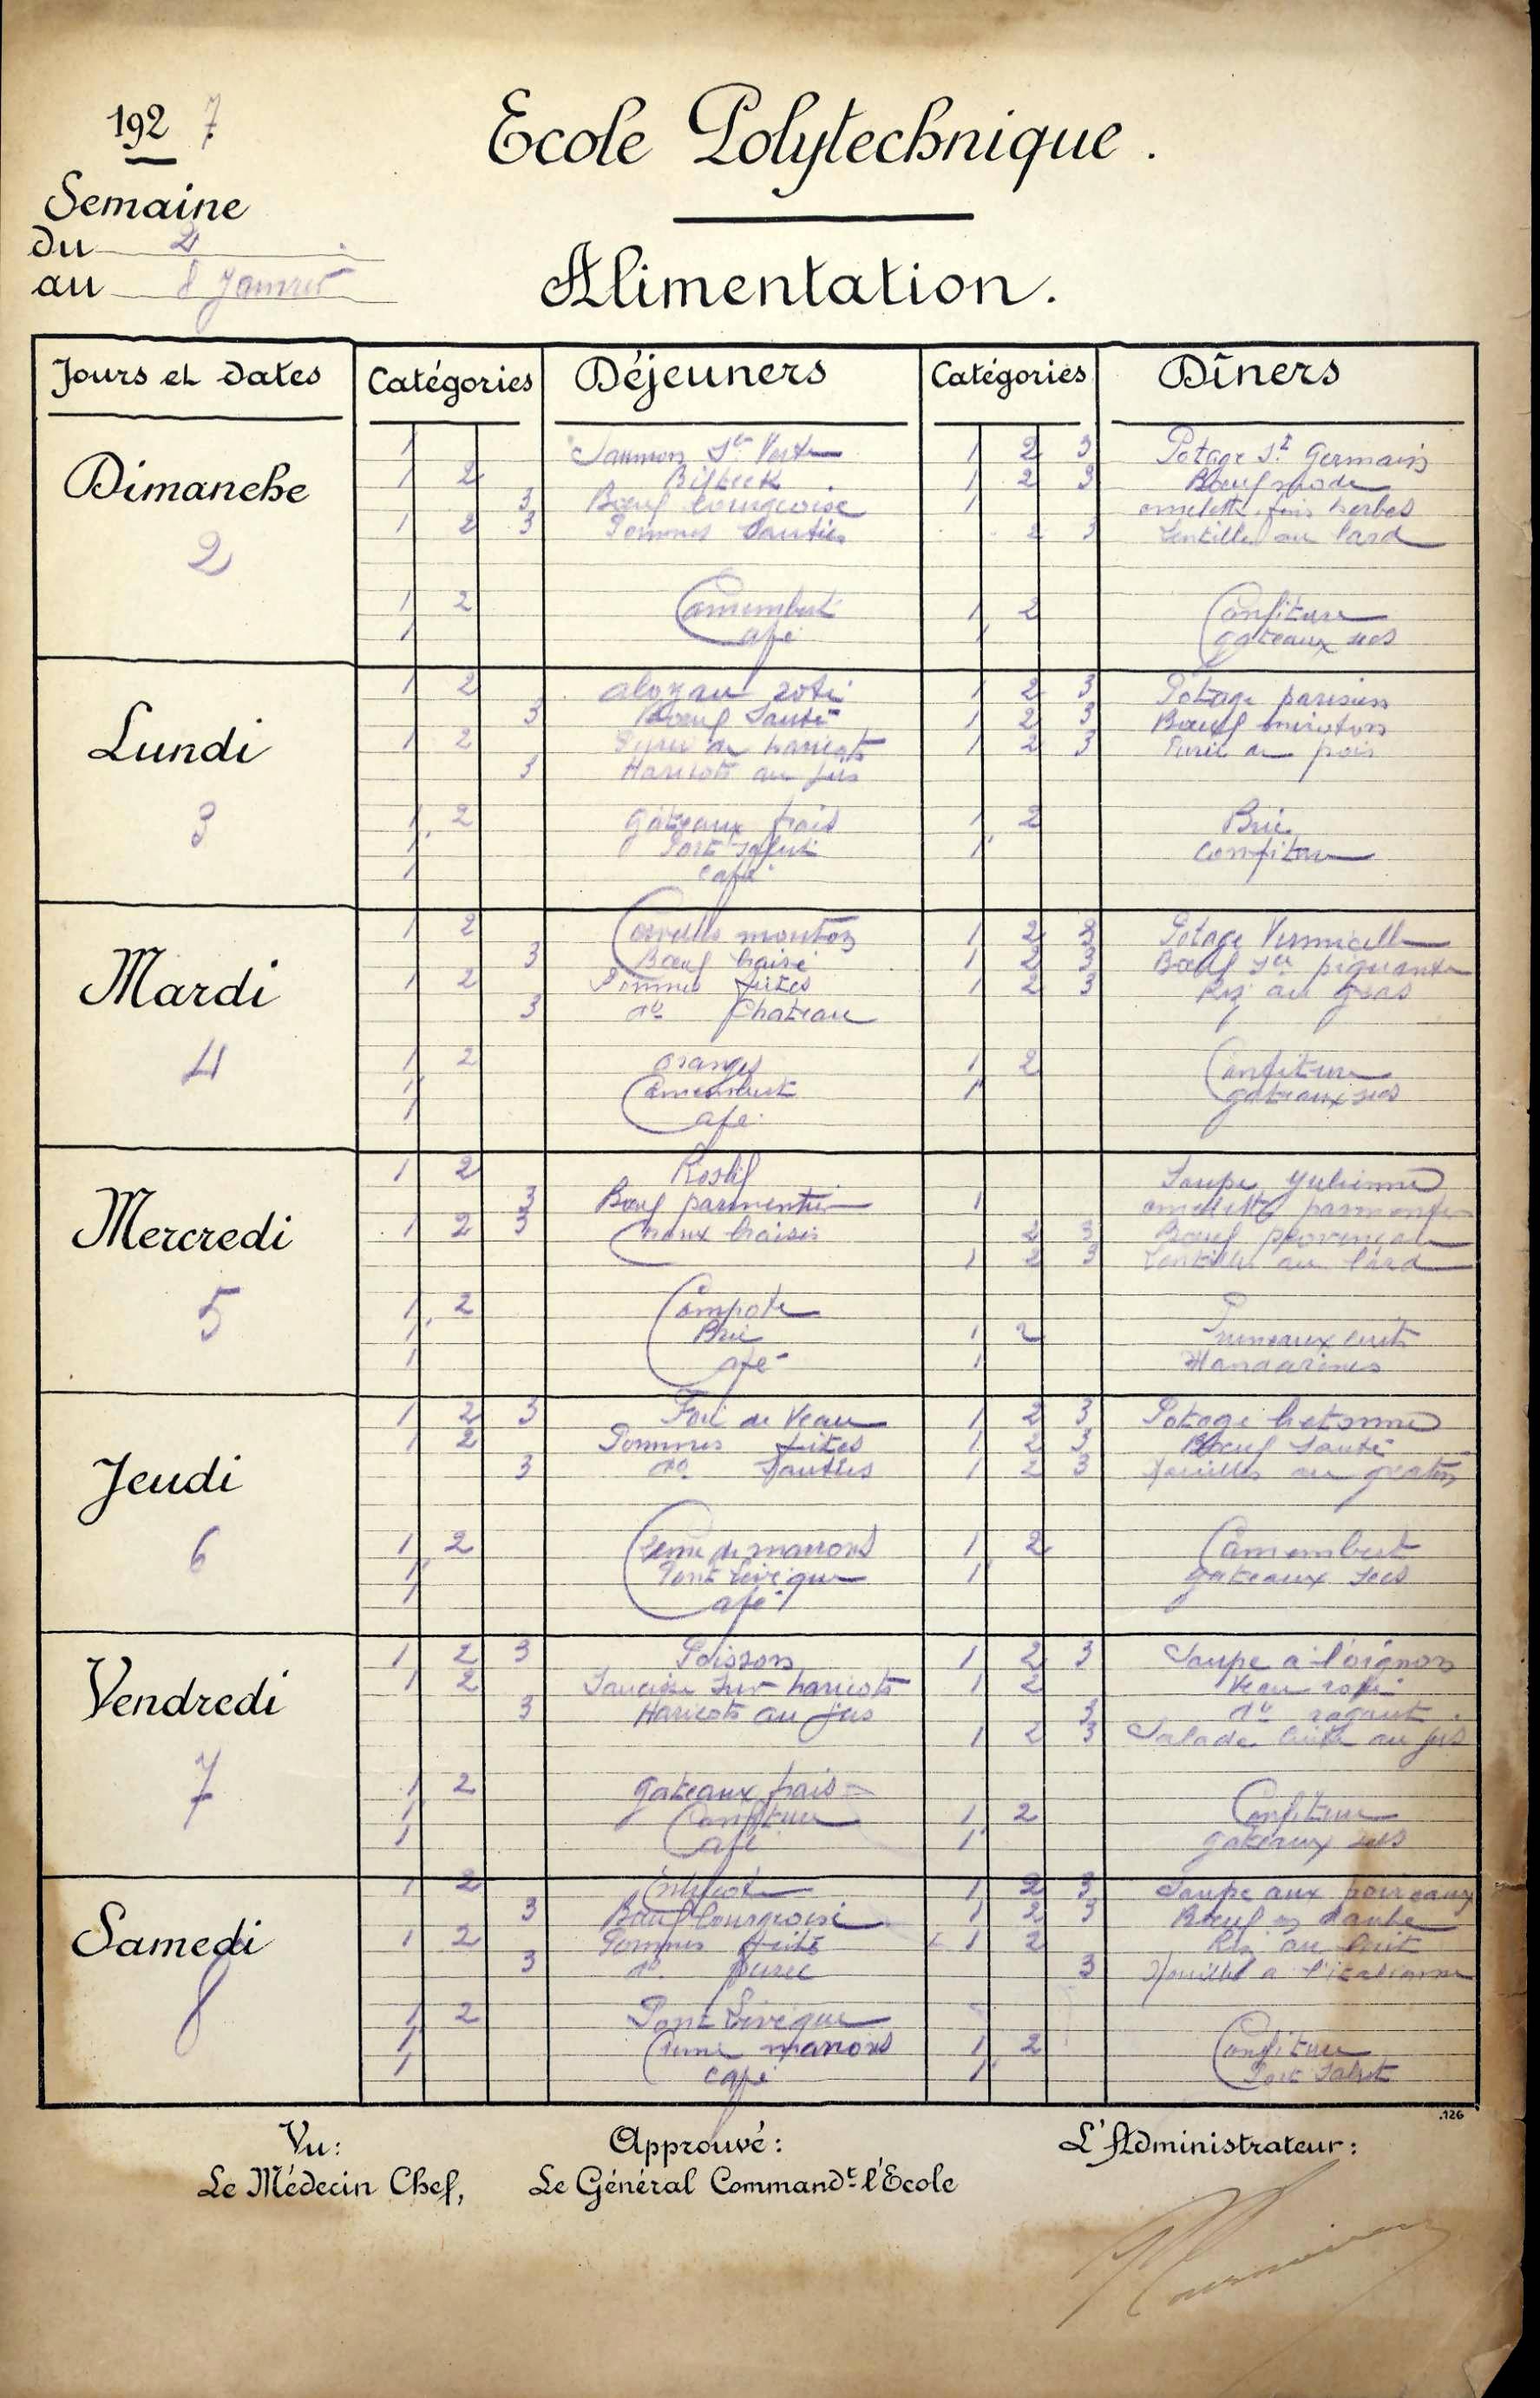 192 7
Ecole Polytechnique.
Semaine
du 2
au 8 Janvier
Alimentation.
Jours et Dates Catégories Déjeuners Catégories Dîners
Dimanche 2
1 Saumon Sce Verte
1 2 Bifteck
3 Bœuf bourgeoise
1 2 3 Pommes Sautées
1 2 Camembert
1 Café
1 2 3 Potage St Germain
1 2 3 Bœuf mode
1 omelette fines herbes
2 3 Lentilles au lard
1 2 Confiture
1 gateaux secs
Lundi 3
1 2 aloyau roti
3 Bœuf Sauté
1 2 Purée de haricots
3 Haricots au jus
1 2 gateaux frais
1 Port Salut
1 Café
1 2 3 Potage parisien
1 2 3 Bœuf miroton
1 2 3 Purée de pois
1 2 Brie
1 Confiture
Mardi 4
1 2 Cervelles mouton
3 Bœuf braisé
1 2 Pommes frites
3 do Chateau
1 2 oranges
1 Camembert
1 Café
1 2 3 Potage Vermicelle
1 2 3 Bœuf Sce piquante
1 2 3 Riz au gras
1 2 Confiture
1 gateaux secs
Mercredi 5
1 2 Rosbif
3 Bœuf parmentier
1 2 3 Choux braisés
1 2 Compote
1 Brie
1 Café
Soupe Julienne
1 omelette parmentier
2 3 Bœuf provençale
1 2 3 Lentilles au lard
1 2 Pruneaux cuits
1 Mandarines
Jeudi 6
1 2 3 Foie de Veau
1 2 Pommes frites
3 do Sautées
1 2 Crème de marrons
1 Pont Lévêque
1 Café
1 2 3 Potage bretonne
1 2 3 Bœuf Sauté
1 2 3 Nouilles au gratin
1 2 Camembert
1 gateaux secs
Vendredi 7
1 2 3 Poisson
1 2 Saucisse sur haricots
3 Haricots au jus
1 2 gateaux frais
1 Confiture
1 Café
1 2 3 Soupe à l'oignon
1 2 Veau roti
3 do ragout
1 2 3 Salade cuite au jus
1 2 Confiture
1 gateaux secs
Samedi 8
1 2 Entrecôte
3 Bœuf bourgeoise
1 2 Pommes frites
3 do purée
1 2 Pont Lévêque
1 Crème marrons
1 Café
1 2 3 Soupe aux poireaux
1 2 3 Bœuf en daube
1 2 Riz au lait
3 Nouilles à l'italienne
1 2 Confiture
1 Port Salut
.126
Vu: Approuvé: L'Administrateur:
Le Médecin Chef, Le Général Commandt l'Ecole